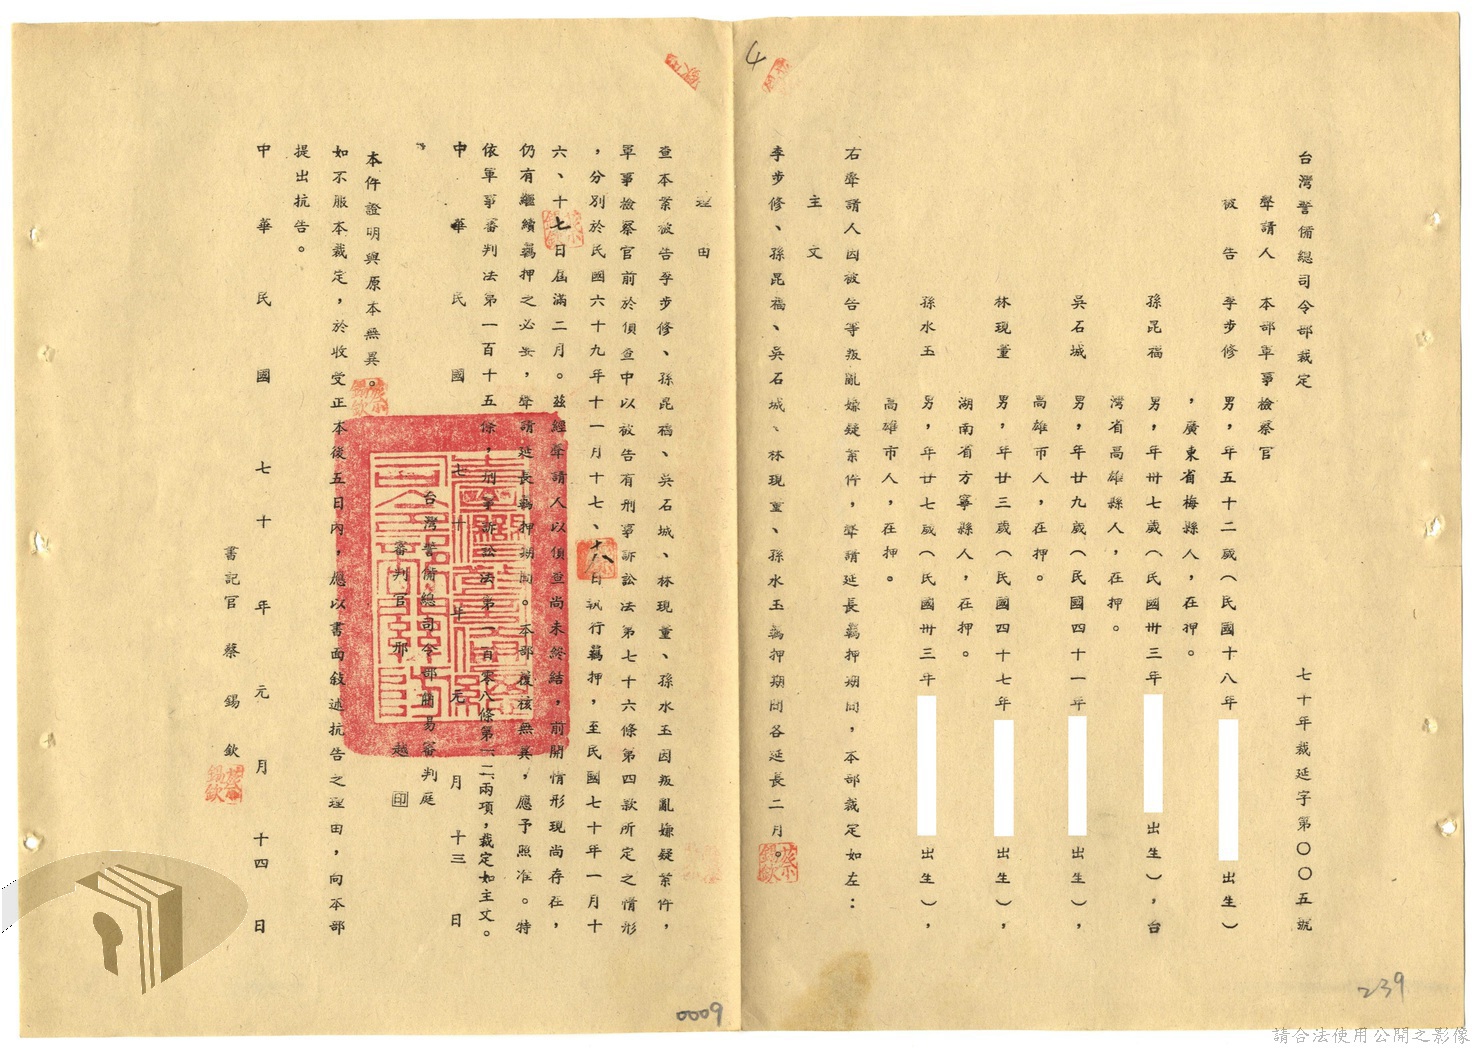 4
台灣警備總司令部裁定
七十年裁延字第〇〇五號
聲請人　本部軍事檢察官
被　告　李步修　男，年五十二歲（民國十八年　出生）
，廣東省梅縣人，在押。
孫昆福　男，年卅七歲（民國卅三年　出生），台
灣省高雄縣人，在押。
吳石城　男，年廿九歲（民國四十一年　出生），
高雄市人，在押。
林現董　男，年廿三歲（民國四十七年　出生），
湖南省方寧縣人，在押。
孫水玉　男，年廿七歲（民國卅三年　出生），
高雄市人，在押。
右聲請人因被告等叛亂嫌疑案件，聲請延長羈押期間，本部裁定如左：
主　文
李步修、孫昆福、吳石城、林現董、孫水玉羈押期間各延長二月。
理　由
查本案被告李步修、孫昆福、吳石城、林現董、孫水玉因叛亂嫌疑案件，
軍事檢察官前於偵查中以被告有刑事訴訟法第七十六條第四款所定之情形
，分別於民國六十九年十一月十七、十八日執行羈押，至民國七十年一月十
六、十七日屆滿二月。茲經聲請人以偵查尚未終結，前開情形現尚存在，
仍有繼續羈押之必要，聲請延長羈押期間。本部覆核無異，應予照准。特
依軍事審判法第一百十五條，刑事訴訟法第一百零八條第一二兩項，裁定如主文。
中　華　民　國　七　十　年　元　月　十三　日
台灣警備總司令部簡易審判庭
審判官　邢　越　印
本件證明與原本無異。
如不服本裁定，於收受正本後五日內，應以書面敍述抗告之理由，向本部
提出抗告。
中　華　民　國　七　十　年　元　月　十四　日
書記官　蔡　錫　欽
0009
239
請合法使用公開之影像